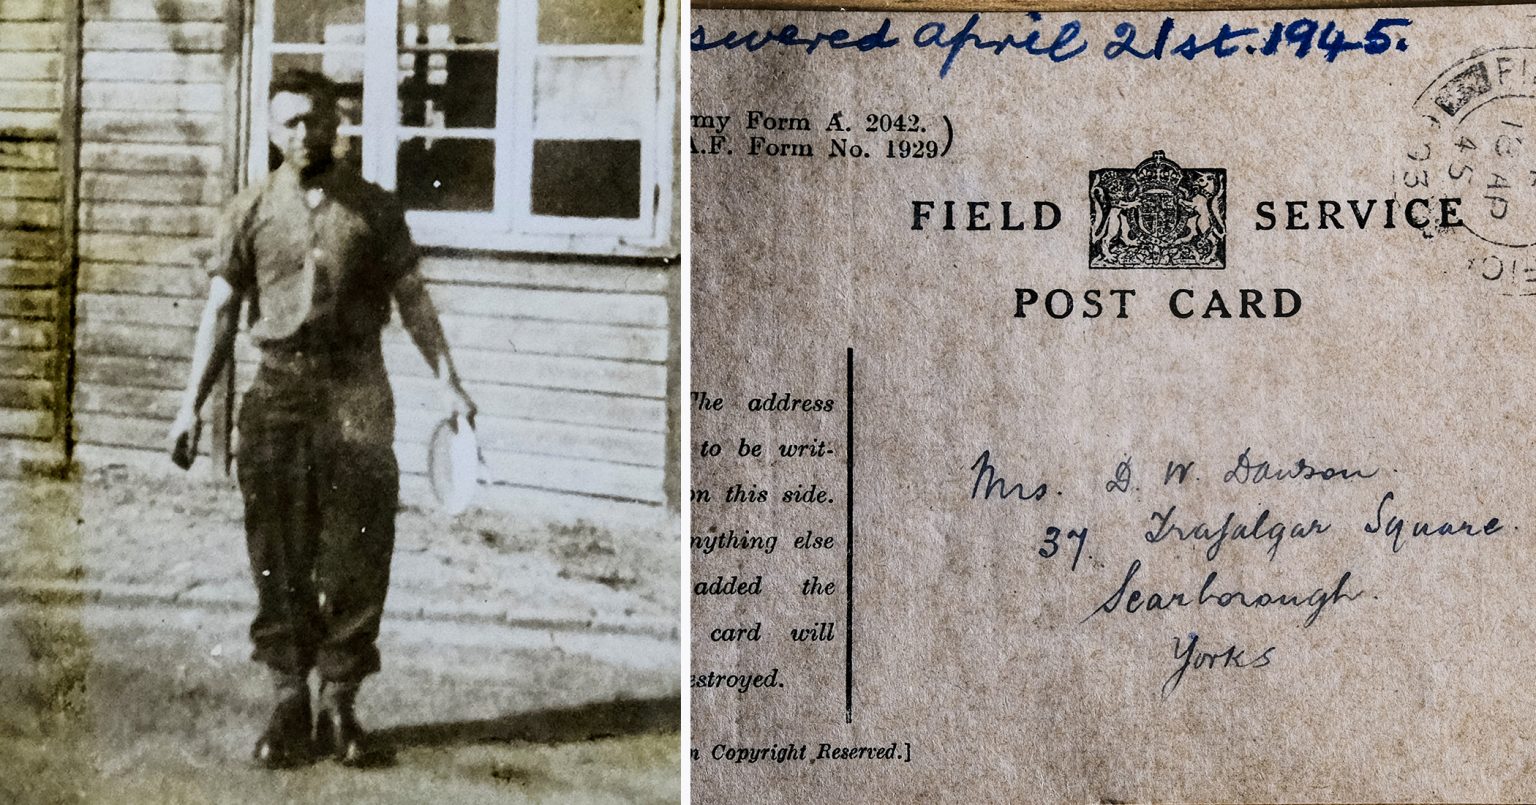 swered April 21st. 1945.
my Form A. 2042.
A.F. Form No. 1929)
FIELD SERVICE
POST CARD
The address
to be writ-
on this side.
nything else
added the
card will
estroyed.
n Copyright Reserved.]
Mrs. D. W. Dawson.
37. Trafalgar Square.
Scarborough.
Yorks
18 AP
45